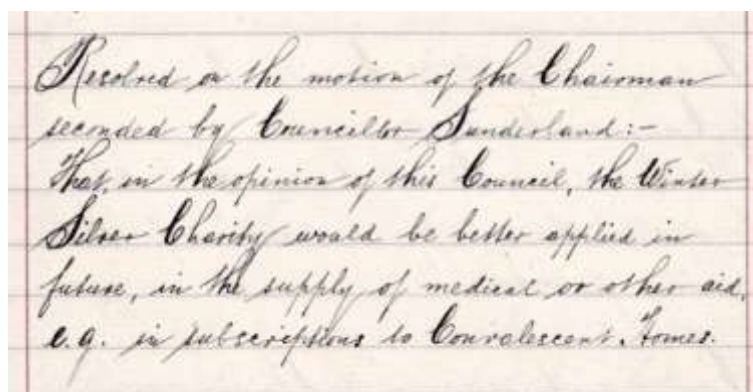 Resolved on the motion of the Chairman
seconded by Councillor Sunderland:-
That, in the opinion of this Council, the Winter
Silver Charity would be better applied in
future, in the supply of medical or other aid,
e.g. in subscriptions to Convalescent Homes.